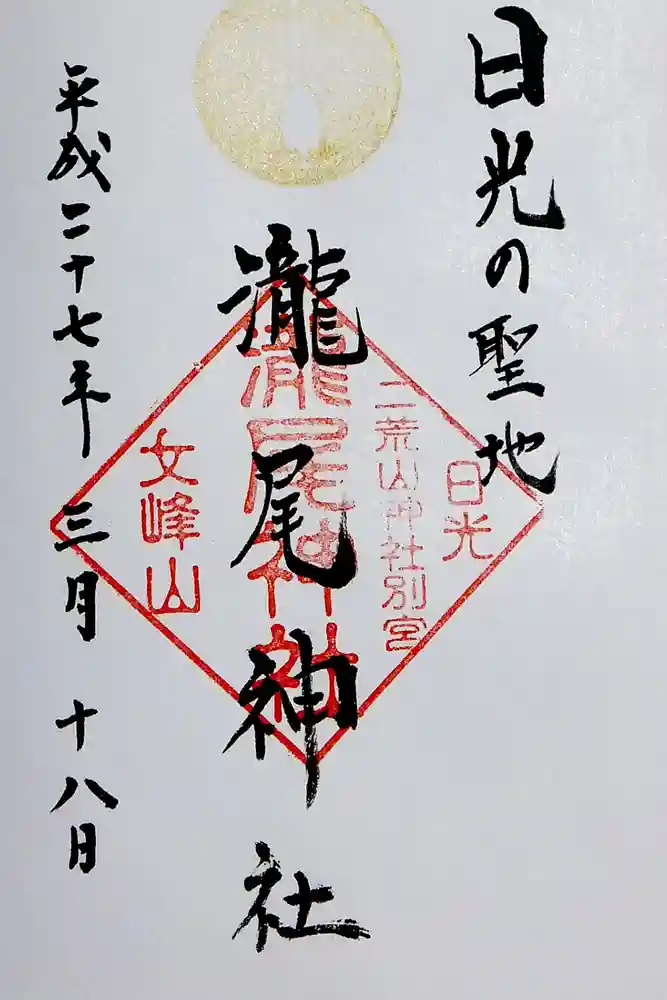 日光の聖地
日光
二荒山神社別宮
瀧尾神社
瀧尾神社
女峰山
平成二十七年三月十八日